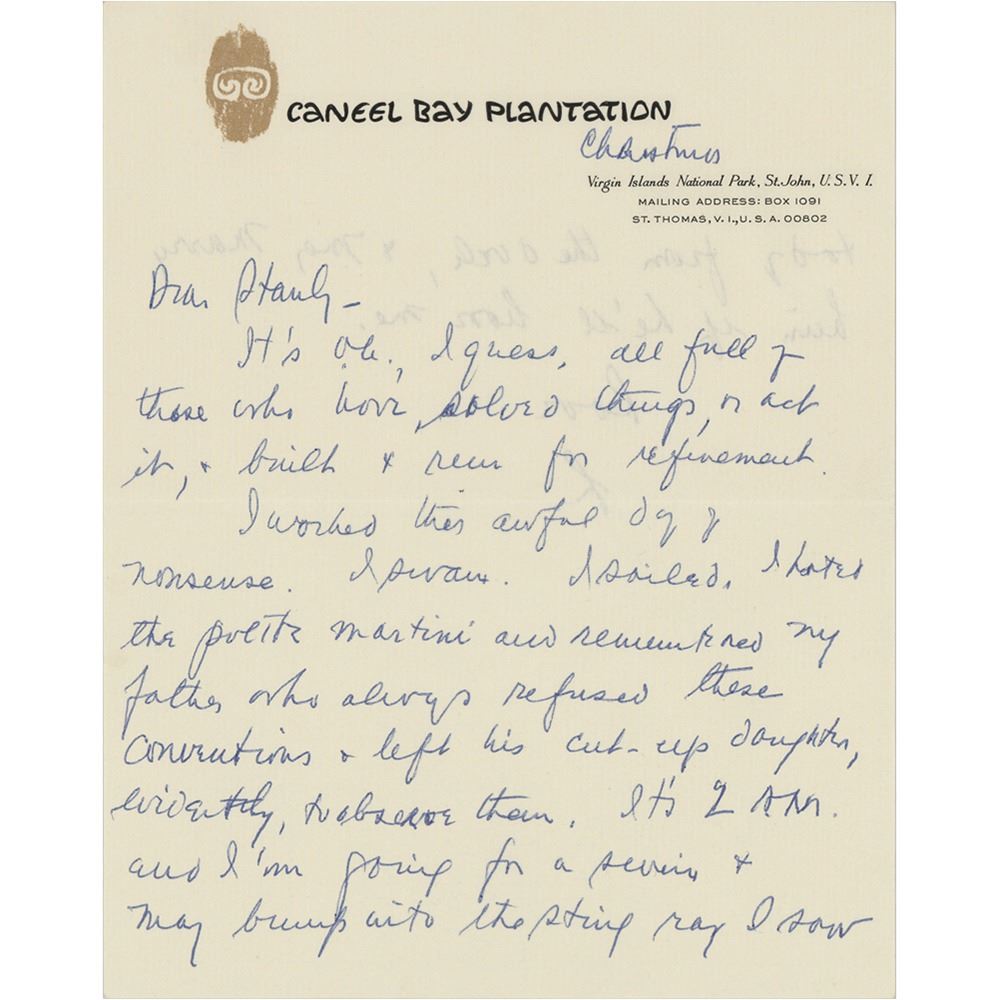 CANEEL BAY PLANTATION
Christmas
Virgin Islands National Park, St. John, U.S.V.I.
MAILING ADDRESS: BOX 1091
ST. THOMAS, V.I., U.S.A. 00802
Dear Stanly –
It's O.k., I guess, all full of
those who have solved things, or act
it, + built + run for refinement.
I worked this awful day of
nonsense. I swam. I sailed. I hated
the polite martini and remembered my
father who always refused these
conventions + left his cut-up daughter,
evidently, to observe them. It's 2 A.M.
and I'm going for a swim +
may bump into the sting ray I saw
today from the dock, + may marry
him if he'll have me.
Love
K